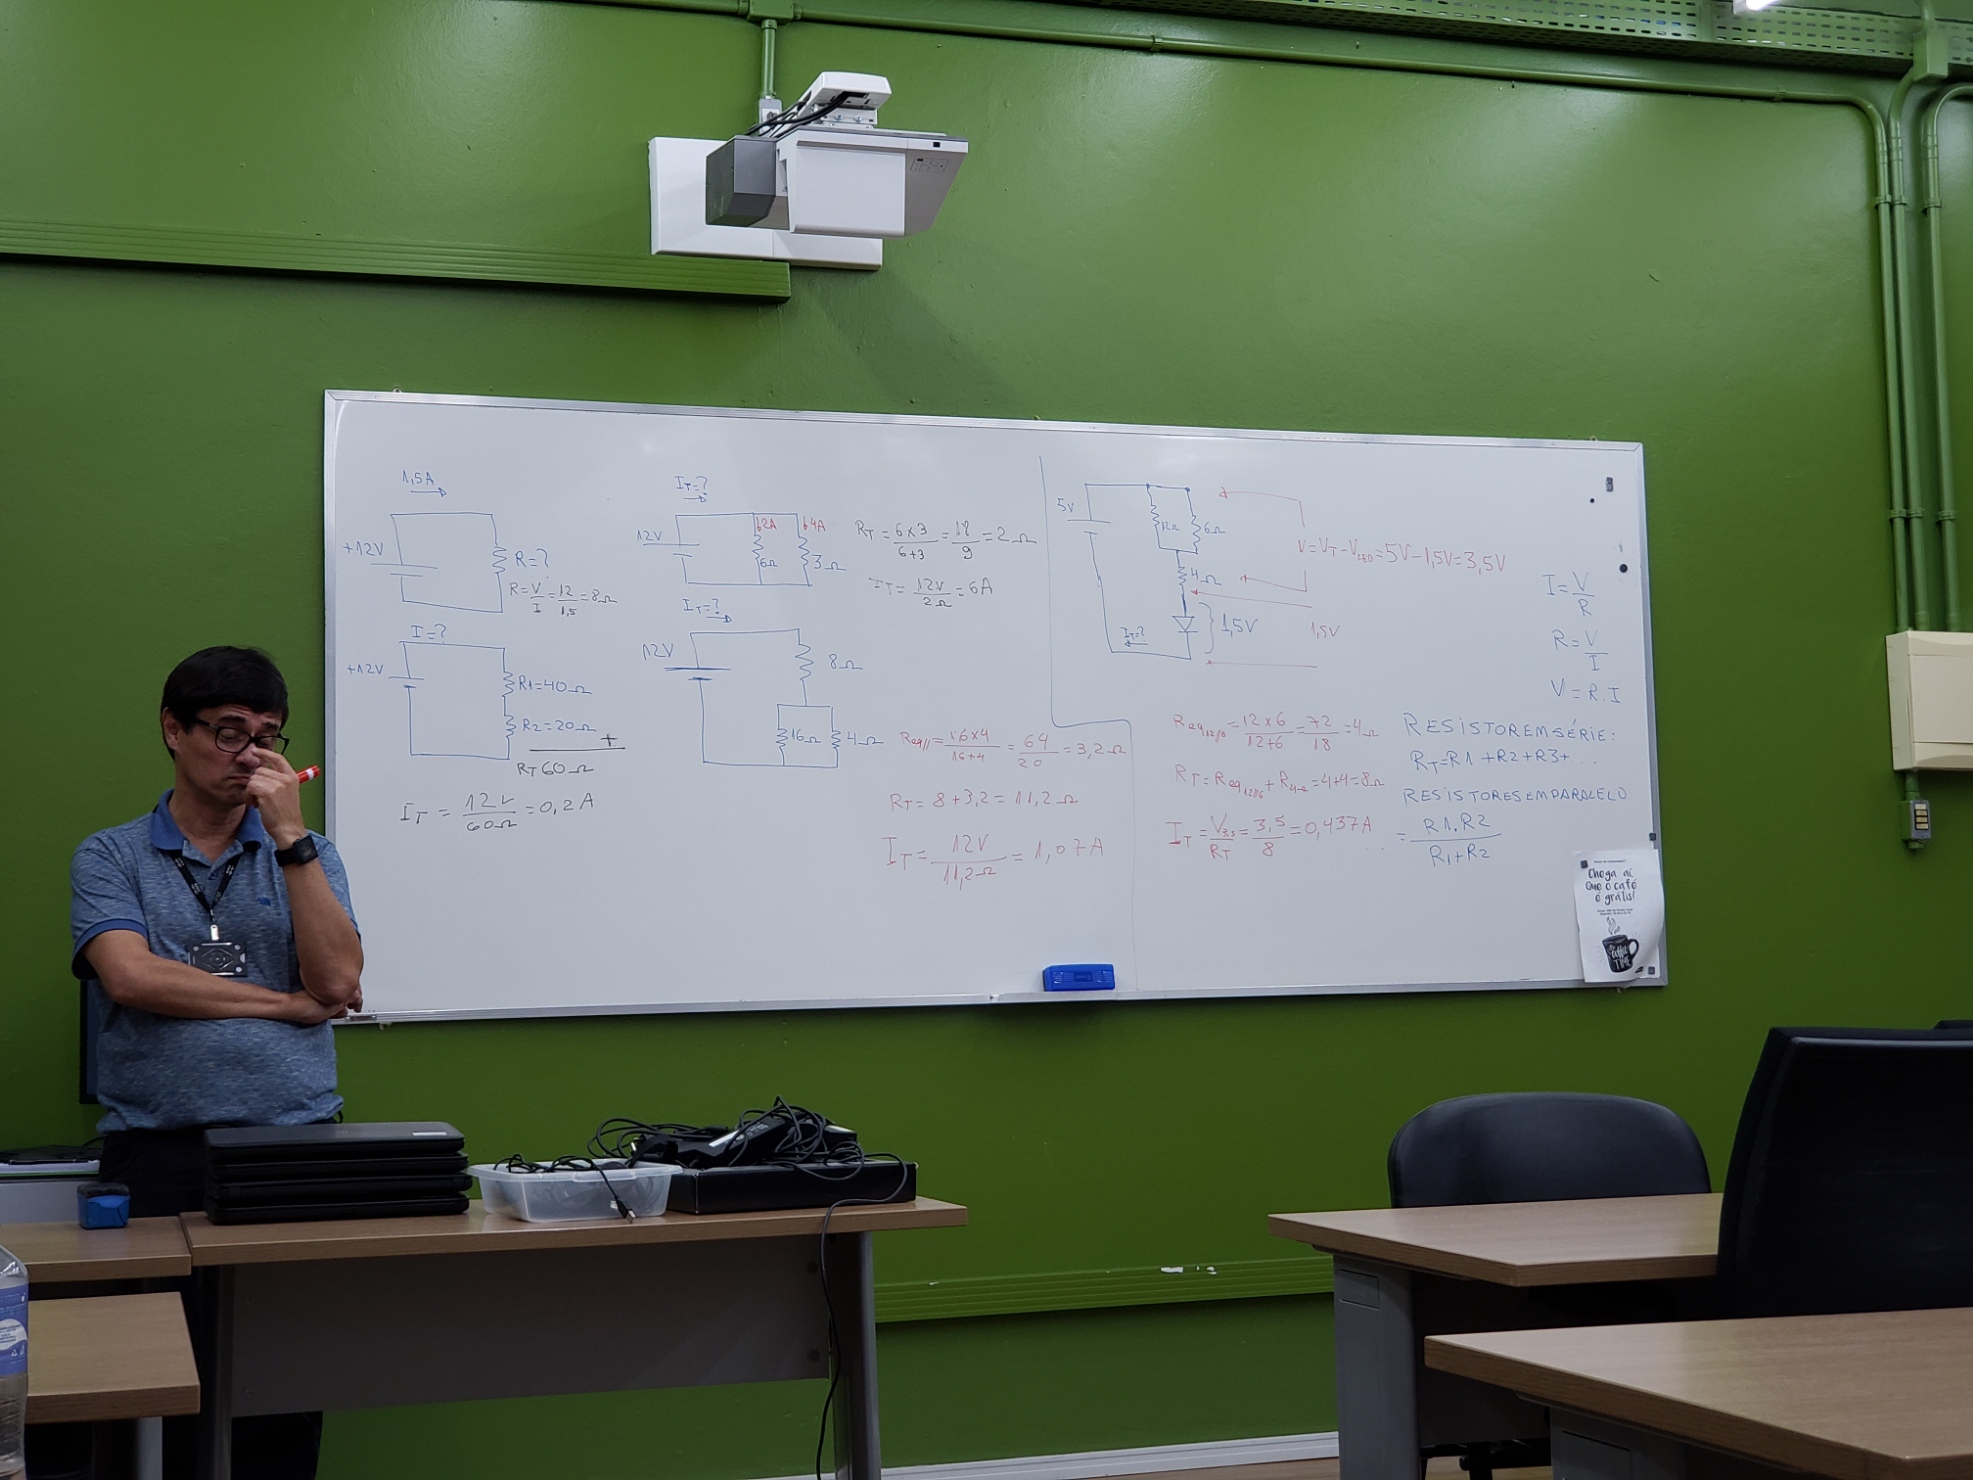 1,5A
+12V
R=?
R=V/I=12/1,5=8Ω
I=?
+12V
R1=40Ω
R2=20Ω
+
RT 60Ω
IT=12V/60Ω=0,2A
IT=?
12V
2A
4A
6Ω
3Ω
RT=6x3/6+3=18/9=2Ω
IT=12V/2Ω=6A
IT=?
12V
8Ω
16Ω
4Ω
Req//=16x4/16+4=64/20=3,2Ω
RT=8+3,2=11,2Ω
IT=12V/11,2Ω=1,07A
5V
12Ω
6Ω
4Ω
1,5V
IT=?
V=VT-VLED=5V-1,5V=3,5V
1,5V
Req12//6=12x6/12+6=72/18=4Ω
RT=Req12//6+R4Ω=4+4=8Ω
IT=V3,5/RT=3,5/8=0,437A
I=V/R
R=V/I
V=R.I
RESISTOR EM SÉRIE:
RT=R1+R2+R3+...
RESISTORES EM PARALELO
=R1.R2/R1+R2
Chega aí
Que o café
é grátis!
coffee
TIME